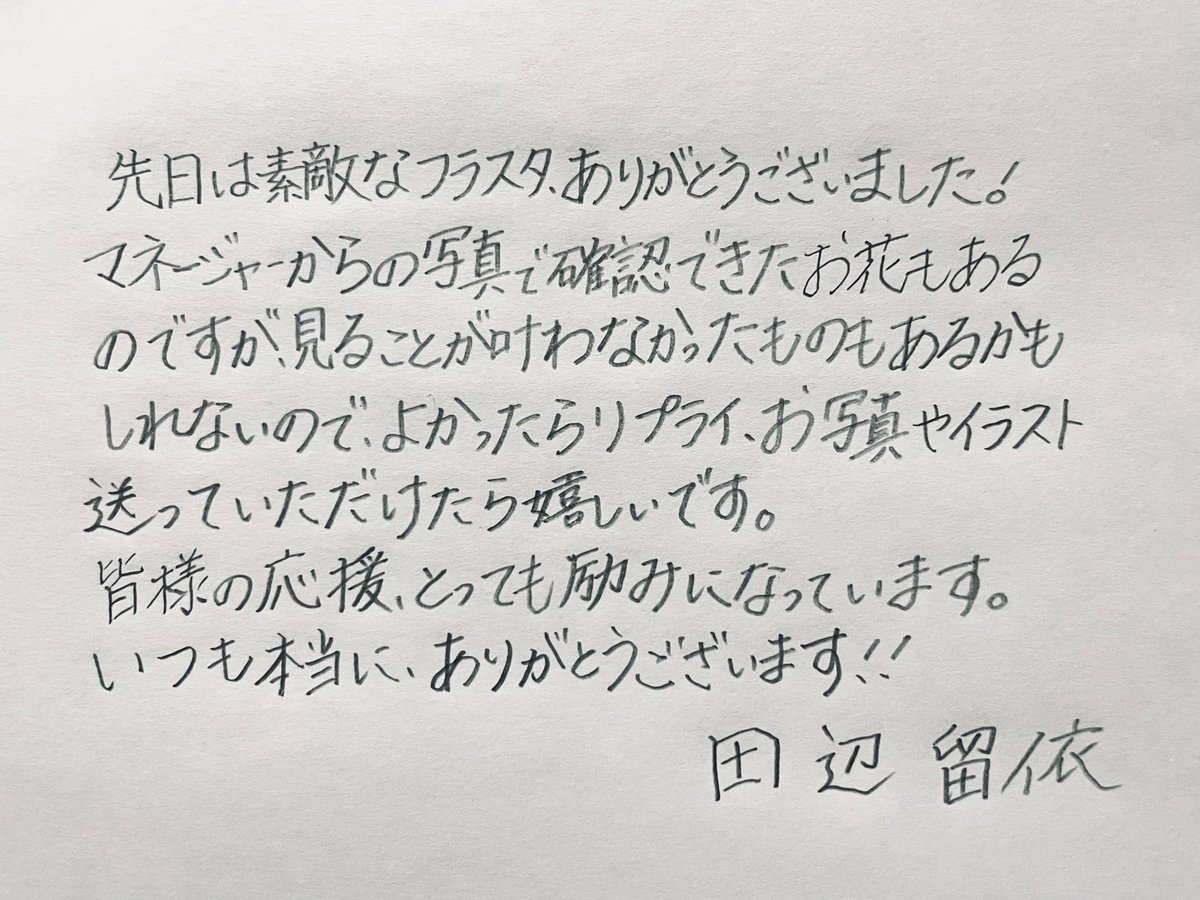 先日は素敵なフラスタ、ありがとうございました!
マネージャーからの写真で確認できたお花もある
のですが、見ることが叶わなかったものもあるかも
しれないので、よかったらリプライ、お写真やイラスト
送っていただけたら嬉しいです。
皆様の応援、とっても励みになっています。
いつも本当に、ありがとうございます!!
田辺留依